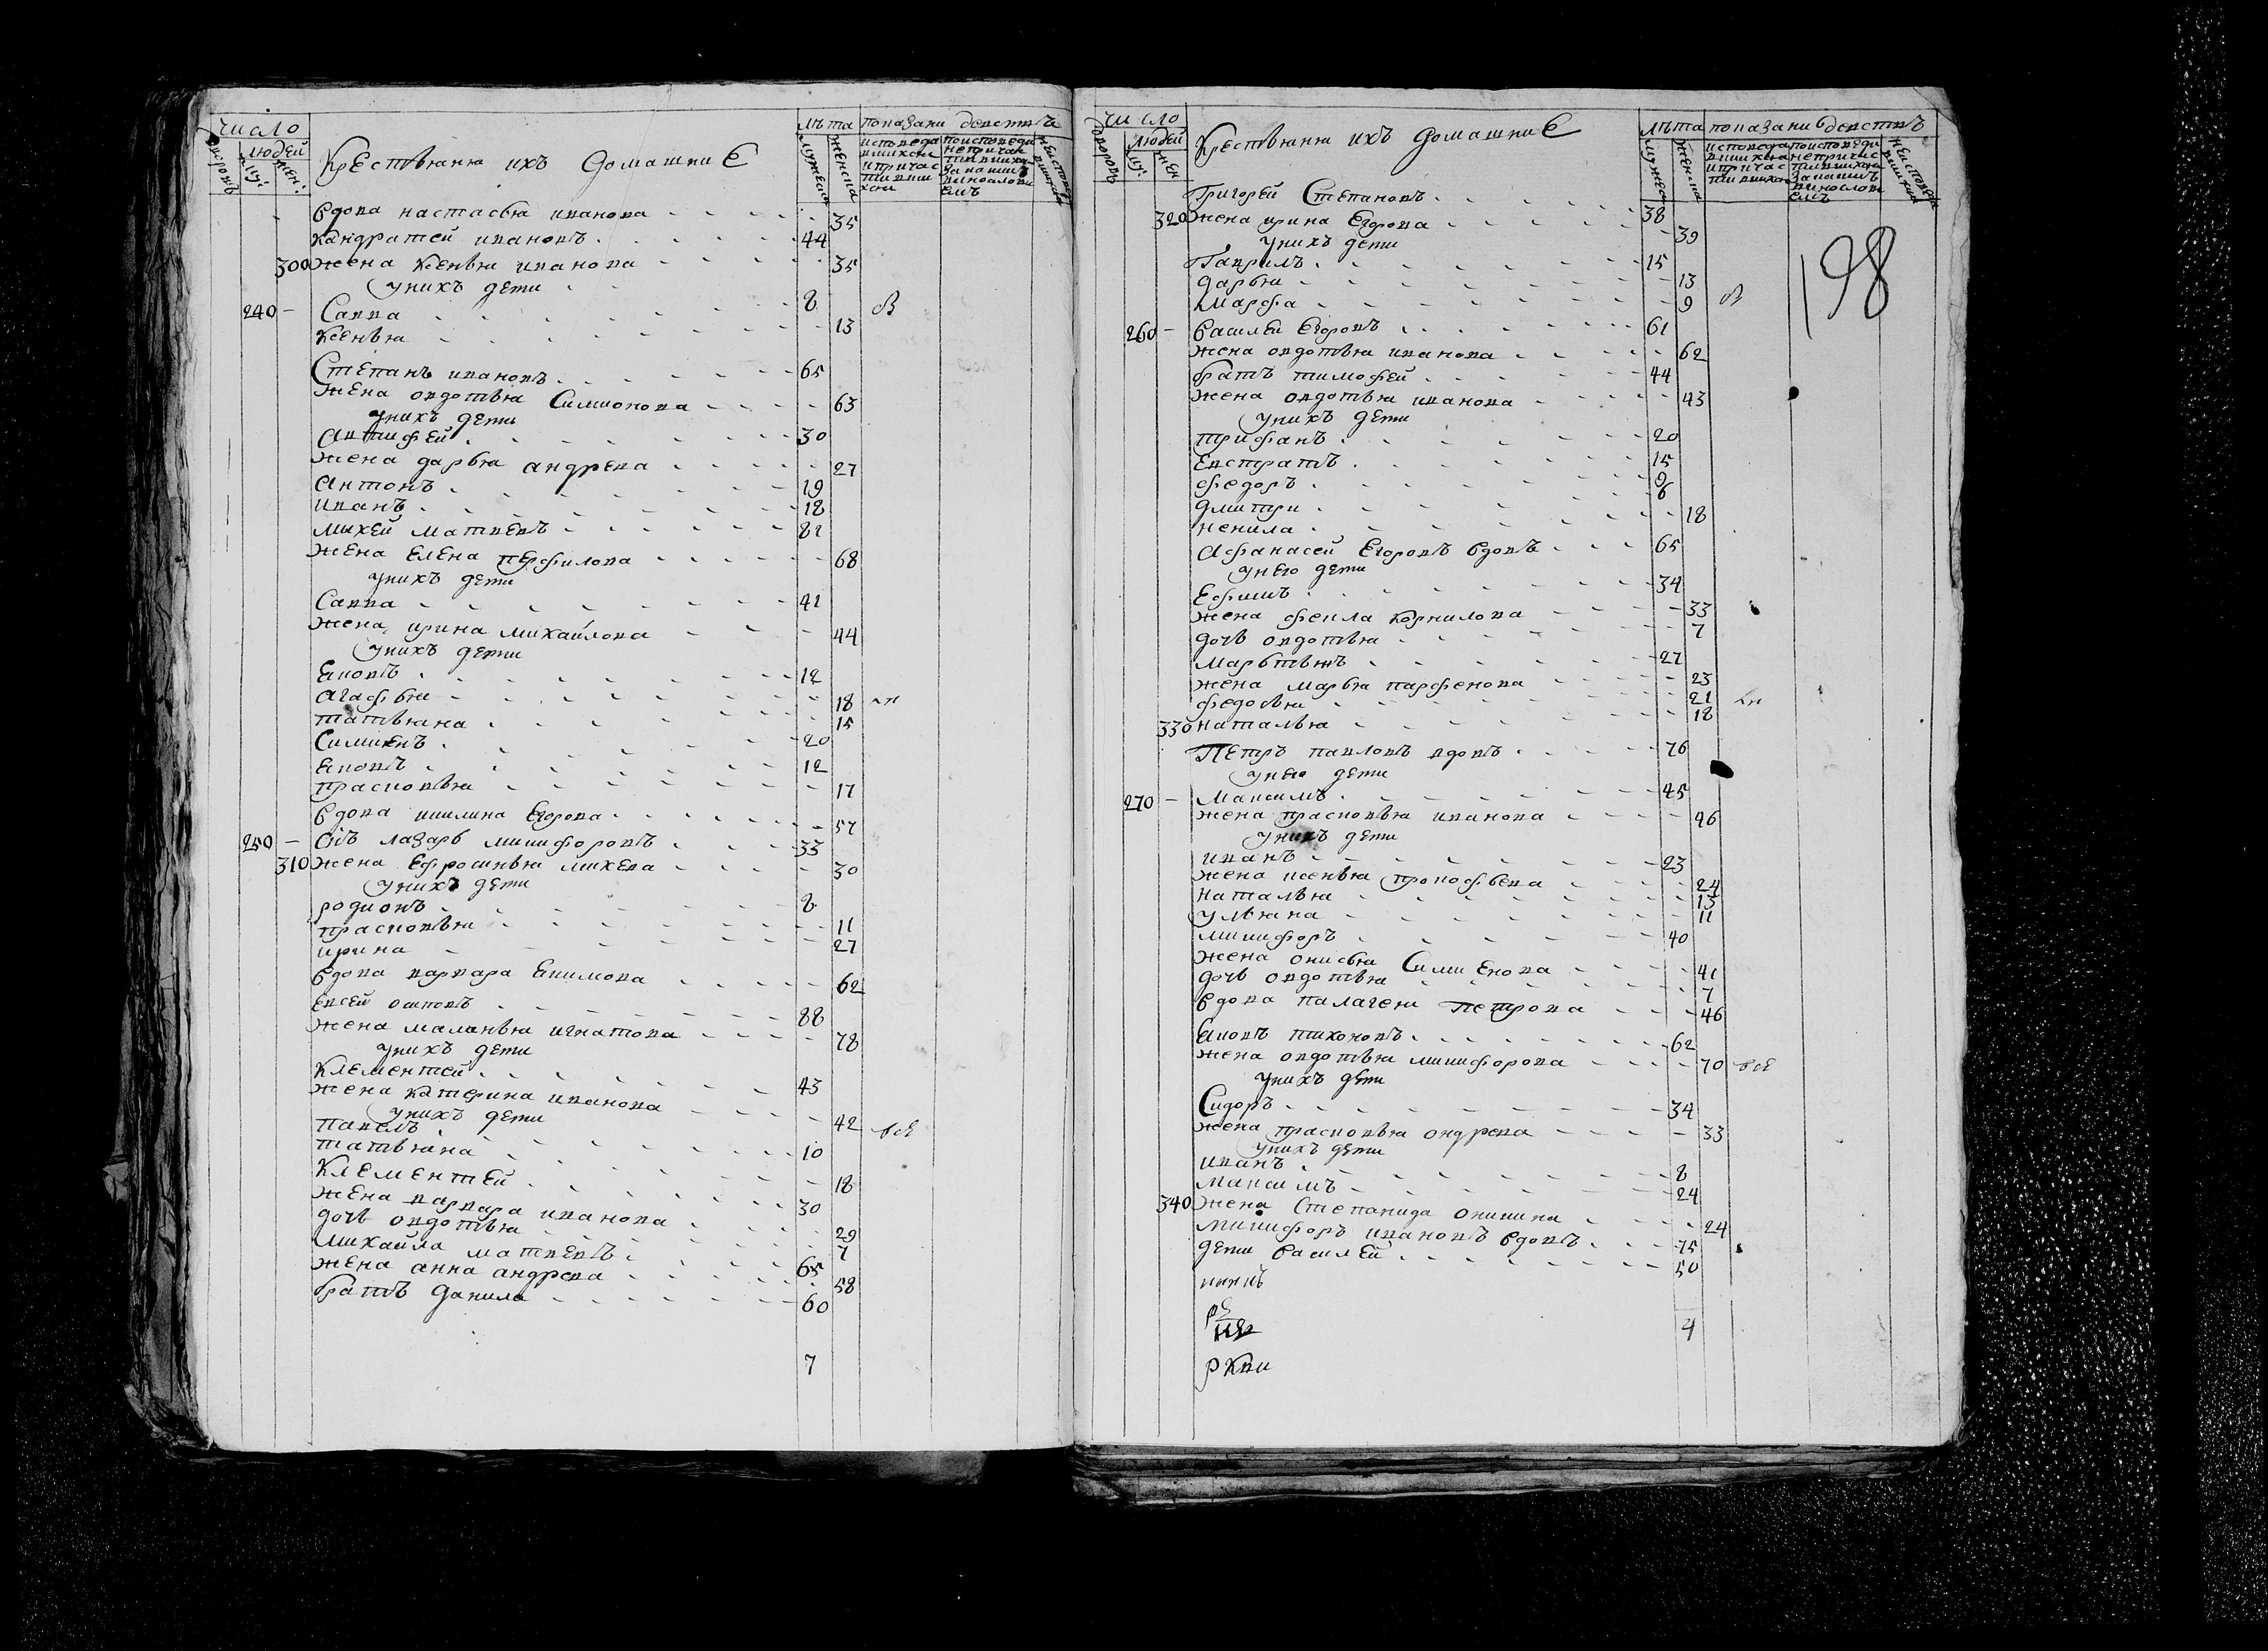 число
людей
дворовъ
муж:
жен:
Крествяня ихъ домашние
лѣта
мужеска
женска
показани действъ
исповеда
вшихся
и причас
тивши
хся
по исповеди
не причас
тившихся
за каким
винослови
емъ
не исповеда
вшихся
вдова настасья иванова 35
Кандратей ивановъ 44
300 жена Ксенья иванова 35
у них дети
240 Савва 8 В
Ксенья 13
Степанъ ивановъ 65
жена овдотья Симионова 63
у нихъ дети
Антифей 30
жена дарья андрева 27
Антонъ 19
иванъ 18
михей матвевъ 81
жена Елена перфилова 68
у нихъ дети
Савва 41
жена ирина михайлова 44
у нихъ дети
Яковъ 12
агафья 18
татьяна 15
Симиенъ 20
Яковъ 12
прасковья 17
вдова Егорова 57
250 Сн҃ъ лазарь микифоровъ 33
310 жена Ефросинья михева 30
у нихъ дети
родионъ 8
прасковья 11
ирина 27
вдова варвара Якимова 62
Евсей осиповъ 88
жена маланья игнатова 78
у нихъ дети
Клементей 43
жена катерина иванова 42 все
у нихъ дети
павелъ 10
татьяна 18
Клементей 30
жена варвара иванова 29
дочь овдотья 7
михайла матвевъ 65
жена анна андрева 58
братъ данила 60
7
число
дворовъ
людей
муж:
жен
Крествяня ихъ домашние
лѣта
мужеска
женска
показание действъ
исповеда
вшихся
и причас
тившихся
по исповеди
не причас
тившихся
за каким
винослови
емъ
не исповеда
вшихся
198
Григорей Степановъ 38
320 жена ирина Егорова 39
у нихъ дети
Гаврилъ 15
дарья 13
Марфа 9 В
260 василей Егоровъ 61
жена овдотья иванова 62
братъ тимофей 44
жена овдотья иванова 43
у нихъ дети
трифанъ 20
Евстратъ 15
федоръ 9
дмитри 6
ненила 18
Афанасей Егоровъ вдовъ 65
у него дети
Ефимъ 34
жена фекла корнилова 33
дочь овдотья 7
Мартьянъ 27
жена марья парфенова 23
федосья 21
330 наталья 18
Петръ павловъ вдовъ 76
у него дети
270 Максимъ 45
жена прасковья иванова 46
у нихъ дети
иванъ 23
жена ксенья прокофьева 24
наталья 13
ульяна 11
микифоръ 40
жена онисья Симиенова 41
дочь овдотья 7
вдова палагея Петрова 46
Яковъ тихоновъ 62
жена овдотья микифорова 70 все
у нихъ дети
Сидоръ 34
жена прасковья ондрева 33
у нихъ дети
иванъ 8
максимъ 24
340 жена Степанида оникина 24
микифоръ ивановъ вдовъ 75
дети василей 50
4